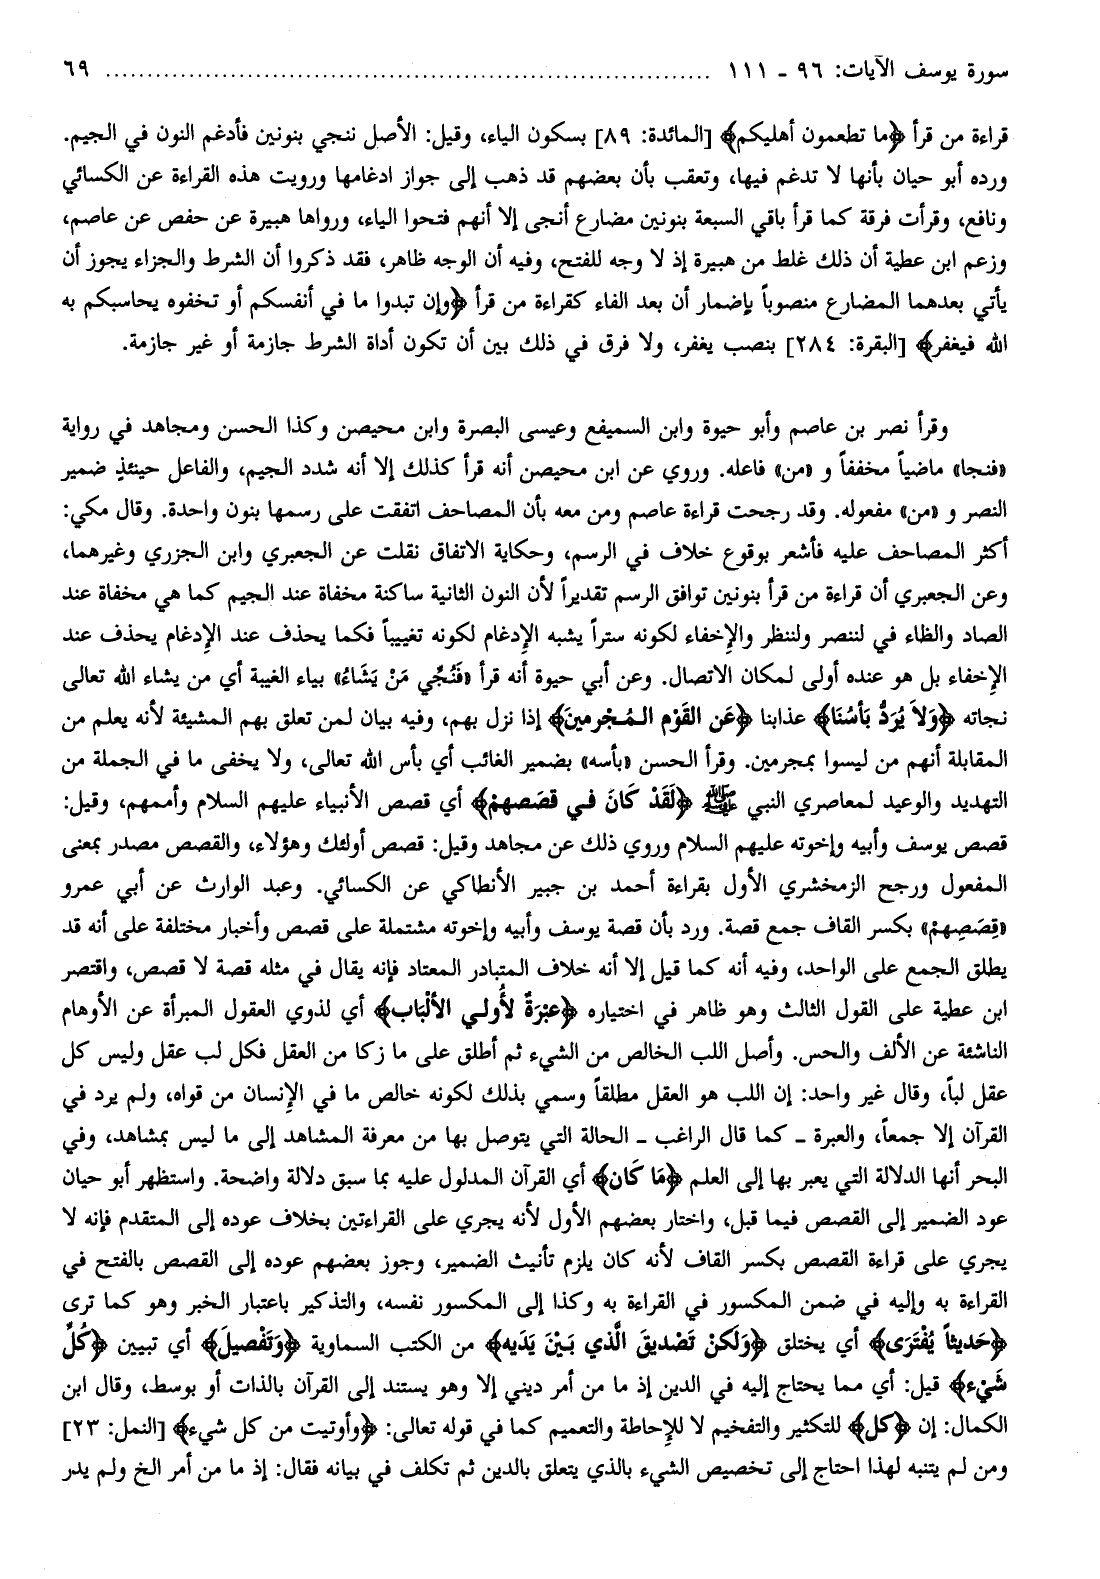 سورة يوسف الآيات: ٩٦ ـ ١١١ ........................................................................... ٦٩
قراءة من قرأ ﴿ما تطعمون أهليكم﴾ [المائدة: ٨٩] بسكون الياء، وقيل: الأصل ننجي بنونين فأدغم النون في الجيم.
ورده أبو حيان بأنها لا تدغم فيها، وتعقب بأن بعضهم قد ذهب إلى جواز ادغامها ورويت هذه القراءة عن الكسائي
ونافع، وقرأت فرقة كما قرأ باقي السبعة بنونين مضارع أنجى إلا أنهم فتحوا الياء، ورواها هبيرة عن حفص عن عاصم،
وزعم ابن عطية أن ذلك غلط من هبيرة إذ لا وجه للفتح، وفيه أن الوجه ظاهر، فقد ذكروا أن الشرط والجزاء يجوز أن
يأتي بعدهما المضارع منصوباً بإضمار أن بعد الفاء كقراءة من قرأ ﴿وإن تبدوا ما في أنفسكم أو تخفوه يحاسبكم به
الله فيغفر﴾ [البقرة: ٢٨٤] بنصب يغفر، ولا فرق في ذلك بين أن تكون أداة الشرط جازمة أو غير جازمة.
وقرأ نصر بن عاصم وأبو حيوة وابن السميفع وعيسى البصرة وابن محيصن وكذا الحسن ومجاهد في رواية
«فنجا» ماضياً مخففاً و «من» فاعله. وروي عن ابن محيصن أنه قرأ كذلك إلا أنه شدد الجيم، والفاعل حينئذٍ ضمير
النصر و «من» مفعوله. وقد رجحت قراءة عاصم ومن معه بأن المصاحف اتفقت على رسمها بنون واحدة. وقال مكي:
أكثر المصاحف عليه فأشعر بوقوع خلاف في الرسم، وحكاية الاتفاق نقلت عن الجعبري وابن الجزري وغيرهما،
وعن الجعبري أن قراءة من قرأ بنونين توافق الرسم تقديراً لأن النون الثانية ساكنة مخفاة عند الجيم كما هي مخفاة عند
الصاد والظاء في لننصر ولننظر والإخفاء لكونه ستراً يشبه الإدغام لكونه تغييباً فكما يحذف عند الإدغام يحذف عند
الإخفاء بل هو عنده أولى لمكان الاتصال. وعن أبي حيوة أنه قرأ «فَنُجِّي مَنْ يَشَاءُ» بياء الغيبة أي من يشاء الله تعالى
نجاته ﴿وَلاَ يُرَدُّ بَأسُنَا﴾ عذابنا ﴿عَنِ القَوْمِ المُجْرِمينَ﴾ إذا نزل بهم، وفيه بيان لمن تعلق بهم المشيئة لأنه يعلم من
المقابلة أنهم من ليسوا بمجرمين. وقرأ الحسن «بأسه» بضمير الغائب أي بأس الله تعالى، ولا يخفى ما في الجملة من
التهديد والوعيد لمعاصري النبي ﷺ ﴿لَقَدْ كَانَ في قَصَصهمْ﴾ أي قصص الأنبياء عليهم السلام وأممهم، وقيل:
قصص يوسف وأبيه وإخوته عليهم السلام وروي ذلك عن مجاهد وقيل: قصص أولئك وهؤلاء، والقصص مصدر بمعنى
المفعول ورجح الزمخشري الأول بقراءة أحمد بن جبير الأنطاكي عن الكسائي. وعبد الوارث عن أبي عمرو
«قِصَصِهِمْ» بكسر القاف جمع قصة. ورد بأن قصة يوسف وأبيه وإخوته مشتملة على قصص وأخبار مختلفة على أنه قد
يطلق الجمع على الواحد، وفيه أنه كما قيل إلا أنه خلاف المتبادر المعتاد فإنه يقال في مثله قصة لا قصص، واقتصر
ابن عطية على القول الثالث وهو ظاهر في اختياره ﴿عبْرَةٌ لأُولي الألْبَاب﴾ أي لذوي العقول المبرأة عن الأوهام
الناشئة عن الألف والحس. وأصل اللب الخالص من الشيء ثم أطلق على ما زكا من العقل فكل لب عقل وليس كل
عقل لباً، وقال غير واحد: إن اللب هو العقل مطلقاً وسمي بذلك لكونه خالص ما في الإنسان من قواه، ولم يرد في
القرآن إلا جمعاً، والعبرة ـ كما قال الراغب ـ الحالة التي يتوصل بها من معرفة المشاهد إلى ما ليس بمشاهد، وفي
البحر أنها الدلالة التي يعبر بها إلى العلم ﴿مَا كَان﴾ أي القرآن المدلول عليه بما سبق دلالة واضحة. واستظهر أبو حيان
عود الضمير إلى القصص فيما قبل، واختار بعضهم الأول لأنه يجري على القراءتين بخلاف عوده إلى المتقدم فإنه لا
يجري على قراءة القصص بكسر القاف لأنه كان يلزم تأنيث الضمير، وجوز بعضهم عوده إلى القصص بالفتح في
القراءة به وإليه في ضمن المكسور في القراءة به وكذا إلى المكسور نفسه، والتذكير باعتبار الخبر وهو كما ترى
﴿حَديثاً يُفْتَرَى﴾ أي يختلق ﴿وَلَكنْ تَصْديقَ الَّذي بَيْنَ يَدَيه﴾ من الكتب السماوية ﴿وَتَفْصيلَ﴾ أي تبيين ﴿كُلِّ
شَيْء﴾ قيل: أي مما يحتاج إليه في الدين إذ ما من أمر ديني إلا وهو يستند إلى القرآن بالذات أو بوسط، وقال ابن
الكمال: إن ﴿كل﴾ للتكثير والتفخيم لا للإحاطة والتعميم كما في قوله تعالى: ﴿وأوتيت من كل شيء﴾ [النمل: ٢٣]
ومن لم يتنبه لهذا احتاج إلى تخصيص الشيء بالذي يتعلق بالدين ثم تكلف في بيانه فقال: إذ ما من أمر الخ ولم يدر